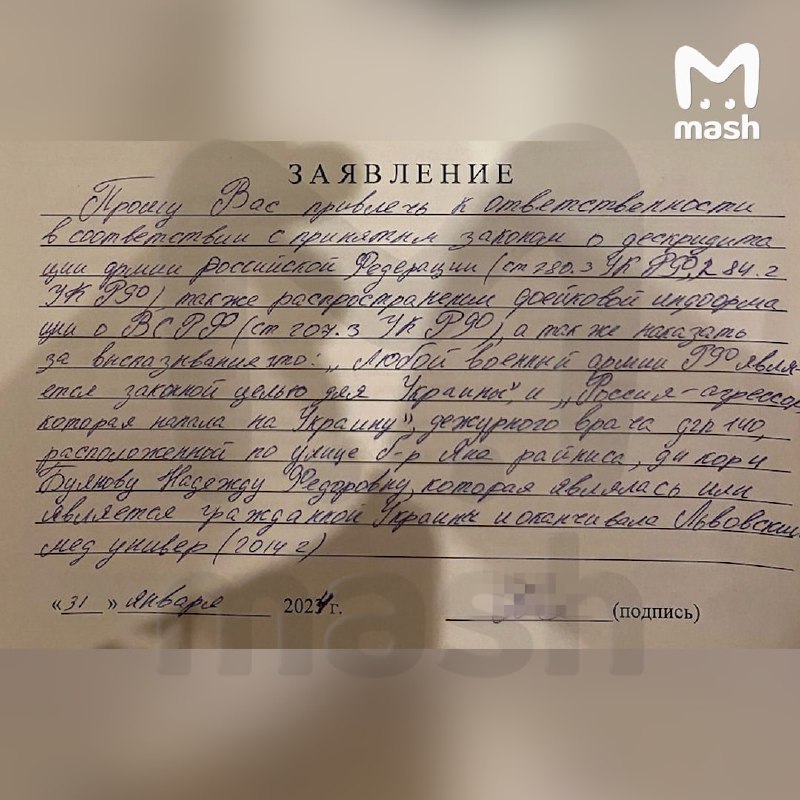 mash
ЗАЯВЛЕНИЕ
Прошу Вас привлечь к ответственности
в соответствии с принятым законом о дескридита
ции армии Российской Федерации (ст 280.3 УК РФ, 284.2
УК РФ) также распространением фейковой информа
ции о ВСРФ (ст 207.3 УК РФ), а также наказать
за высказывание что: "Любой военный армии РФ явля-
ется законной целью для Украины", и "Россия-агрессор
которая напала на Украину", дежурного врача дгп 140,
расположенной по улице б-р Яна райниса,
Буянову Надежду Федоровну, которая являлась или
является гражданкой Украины и оканчивала Львовский
мед универ (2014 г)
«31» января 2024 г. (подпись)
mash